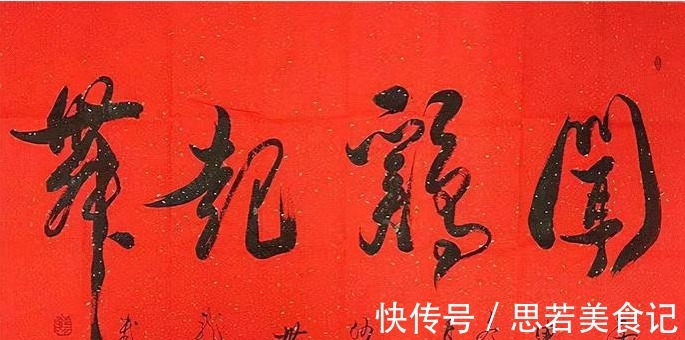 聞鷄起舞
快传号 / 思若美食记